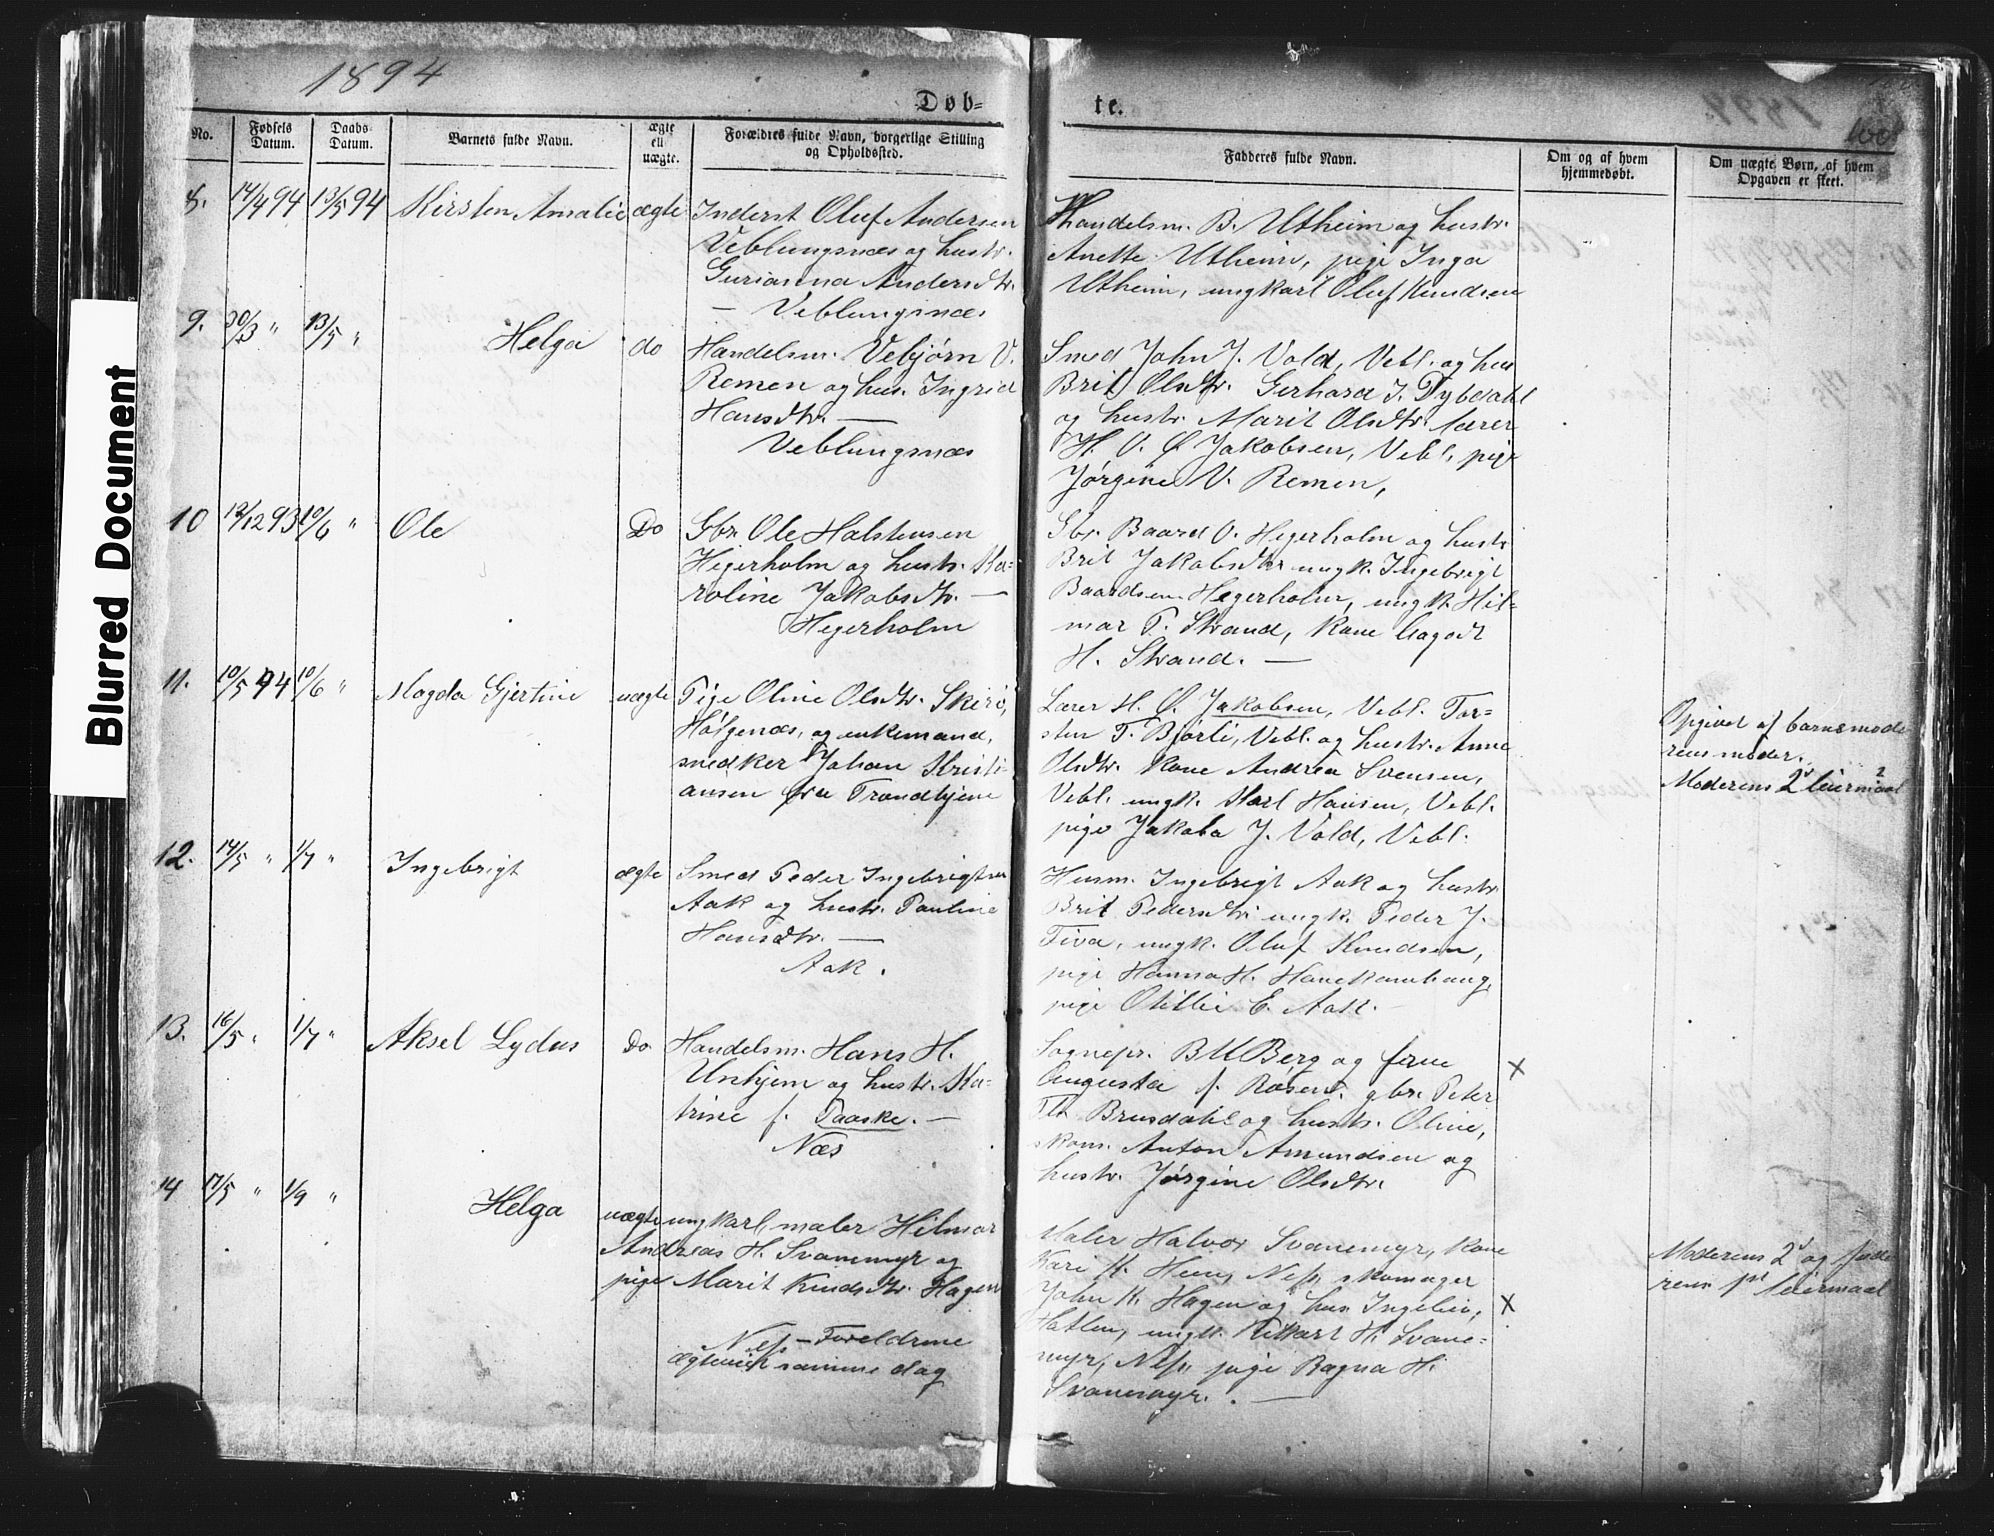 1894
Døb-
No.
Fødsels Datum.
Daabs Datum.
Barnets fulde Navn.
ægte ell uægte.
Forældres fulde Navn, borgerlige Stilling og Opholdssted.
8. 14/4 94 13/5 94 Kirsten Amalie ægte Inderst Oluf Andersen
Veblungsnæs og hustr.
Gurianna Andersdtr.
— Veblungsnæs
9. 30/3 " 13/5 " Helga do Handelsm. Vebjørn V.
Remen og hus. Ingrid
Hansdtr. —
Veblungsnæs
10 12/12 93 10/6 " Ole Do Gbr. Ole Halstensen
Hegerholm og hustr. Ka-
roline Jakobsdtr. —
Hegerholm
11. 10/5 94 10/6 " Magda Gjertine uægte Pige Oline Olsdtr. Skirø,
Holgenæs, og enkemand,
snedker Johan Kristi-
ansen fra Trondhjem
12. 14/5 " 1/7 " Ingebrigt ægte Smed Peder Ingebrigtsen
Aak og hustr. Pauline
Hansdtr. —
Aak.
13. 16/5 " 1/7 " Aksel Lydus Do Handelsm. Hans H.
Unhjem og hustr. Ka-
trine f. Daaske. —
Næs
14 17/5 " 1/9 " Helga uægte ungkarl, maler Hilmar
Andreas H. Svanemyr og
pige Marit Knudsdtr. Hagen
Næs — Foreldrene
ægteviet samme dag
te.
1894
Fadderes fulde Navn.
Om og af hvem hjemmedøbt.
Om uægte Børn, af hvem Opgaven er skeet.
Handelsm. B. Utheim og hustr.
Anette Utheim, pige Inga
Utheim, ungkarl Oluf Knudsen
Smed John J. Vold, Vebl. og hus
Brit Olsdtr. Gerhard J. Dybdahl
og hustr. Marit Olsdtr. lærer
H. O. Ø. Jakobsen, Vebl. pige
Jørgine V. Remen,
Gbr. Baard O. Hegerholm og hustr
Brit Jakobsdtr ungk. Ingebrigt
Baardsen Hegerholm, ungk. Hil-
mar T. Strand, kone Aagodt
H. Strand. —
Lærer H. Ø. Jakobsen, Vebl. Tor-
sten T. Bjørli, Vebl. og hustr. Anne
Olsdtr. kone Andrea Svensen,
Vebl. ungk. Karl Hansen, Vebl.
pige Jakoba J. Vold, Vebl.
Opgivet af barnsmode
rens moder.
Moderens 2d leiermaal
Husm. Ingebrigt Aak og hustr.
Brit Pedersdtr ungk. Peder J.
Tiva, ungk. Oluf Knudsen,
pige Hanna H. Hanekamhaug,
pige Otillie E. Aak. —
Sognepr. B U Berg og frue
Augusta f. Rosen. gbr. Peter
Brusdahl og hustr. Oline,
skom. Anton Amundsen og
hustr. Jørgine Olsdtr.
×
Maler Halvor Svanemyr, kone
Kari K. Hen, Næs, skomager
John K. Hagen og hus Ingelev,
Hatlen, ungk. Rikart H. Svane-
myr, Næs, pige Ragna H.
Svanemyr. —
×
Moderens 2d og fade
rens 1st leiermaal
Blurred Document